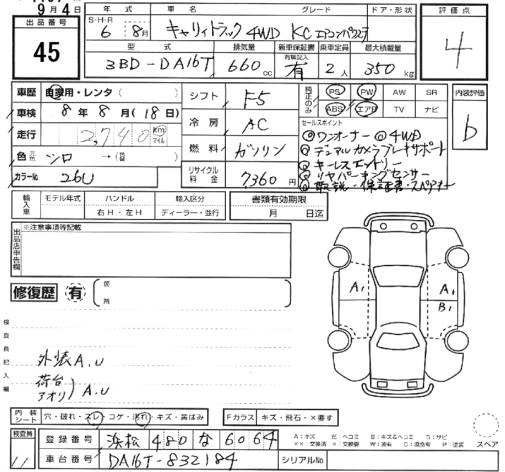 9月4日
出品番号
45
S・H・R 年式 車名 グレード ドア・形状
6 8月 キャリィトラック 4WD KC エアコンパワステ
型式 排気量 新車保証書 乗車定員 最大積載量
有無記入
3BD-DA16T 660cc 有 2人 350kg
評価点
4
車歴 自家用・レンタ( )
車検 8年8月(18日)
走行 2,740 km マイル
色 元色 シロ→( 色替)
カラーNo 26U
シフト F5
冷房 AC
燃料 ガソリン
リサイクル料金 7360円
純正のみ PS PW AW SR
ABS エアB TV ナビ
セールスポイント
◎ワンオーナー ◎4WD
◎デュアルカメラブレーキサポート
◎キーレスエントリー
◎リヤパーキングセンサー
◎取説・保証書・スペアキー
内装評価
b
輸入車 モデル年式 ハンドル 輸入区分
年 右H・左H ディーラー・並行
書類有効期限
月 日迄
出品店申告欄
※注意事項等記載
修復歴 有
箇所
検査員記入欄
外装A.U
荷台
アオリ A.U
A1 A1
B1
内装シート 穴・破れ・スレ・コゲ・汚れ・キズ・黒ばみ
Fガラス キズ・飛石・×要す
スペア
検査員
11
登録番号 浜松 480 な 6064
車台番号 DA16T-832184
シリアルNo
A:キズ E:エクボ B:キズ&ヘコミ S:サビ
××:交換済 ×:交換要 W:波有 C:腐食有 P:塗装